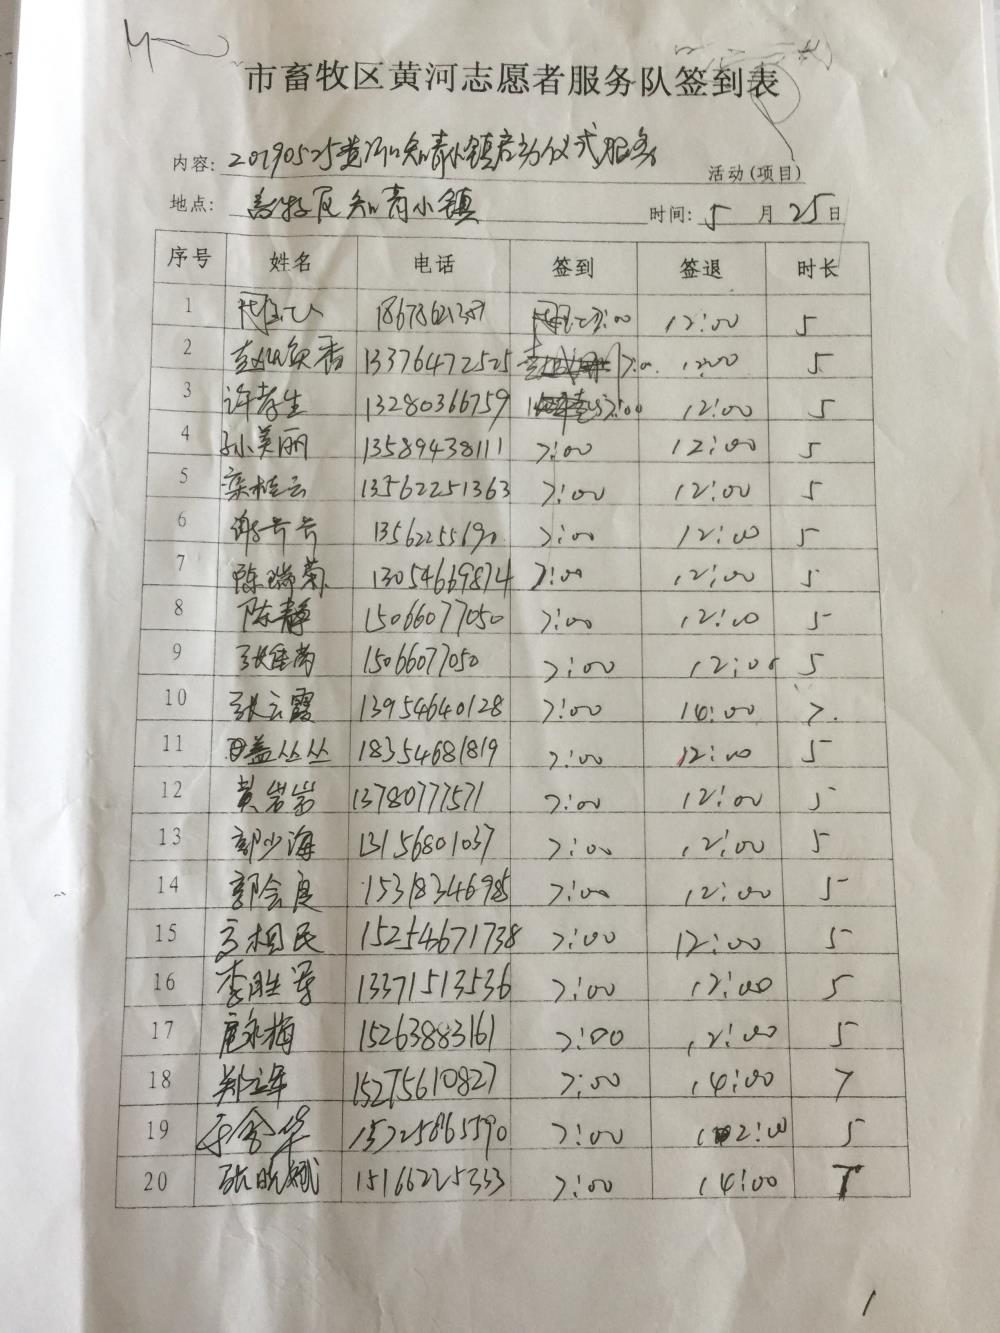 市畜牧区黄河志愿者服务队签到表
内容: 20190525黄河口知青小镇启动仪式服务 活动(项目)
地点: 畜牧区知青小镇 时间: 5 月 25 日
序号 姓名 电话 签到 签退 时长
1 18678621381 7:00 12:00 5
2 13376472525 7:00 12:00 5
3 许孝生 13280366759 7:00 12:00 5
4 孙美丽 13589438111 7:00 12:00 5
5 栾桂云 13562251363 7:00 12:00 5
6 7:00 12:00 5
7 陈瑞菊 13054669874 7:00 12:00 5
8 陈静 15066077050 7:00 12:00 5
9 15066077050 7:00 12:00 5
10 张云霞 13954640128 7:00 14:00 7.
11 盖丛丛 18354681819 7:00 12:00 5
12 黄岩岩 13780777571 7:00 12:00 5
13 郭少海 13156801037 7:00 12:00 5
14 郭会良 15318346985 7:00 12:00 5
15 高相民 15254671738 7:00 12:00 5
16 李胜军 13371513536 7:00 12:00 5
17 唐永梅 15263883161 7:00 12:00 5
18 郑立军 15275610827 7:00 14:00 7
19 15725865590 7:00 12:00 5
20 张晓娥 15166225333 7:00 14:00 7
1